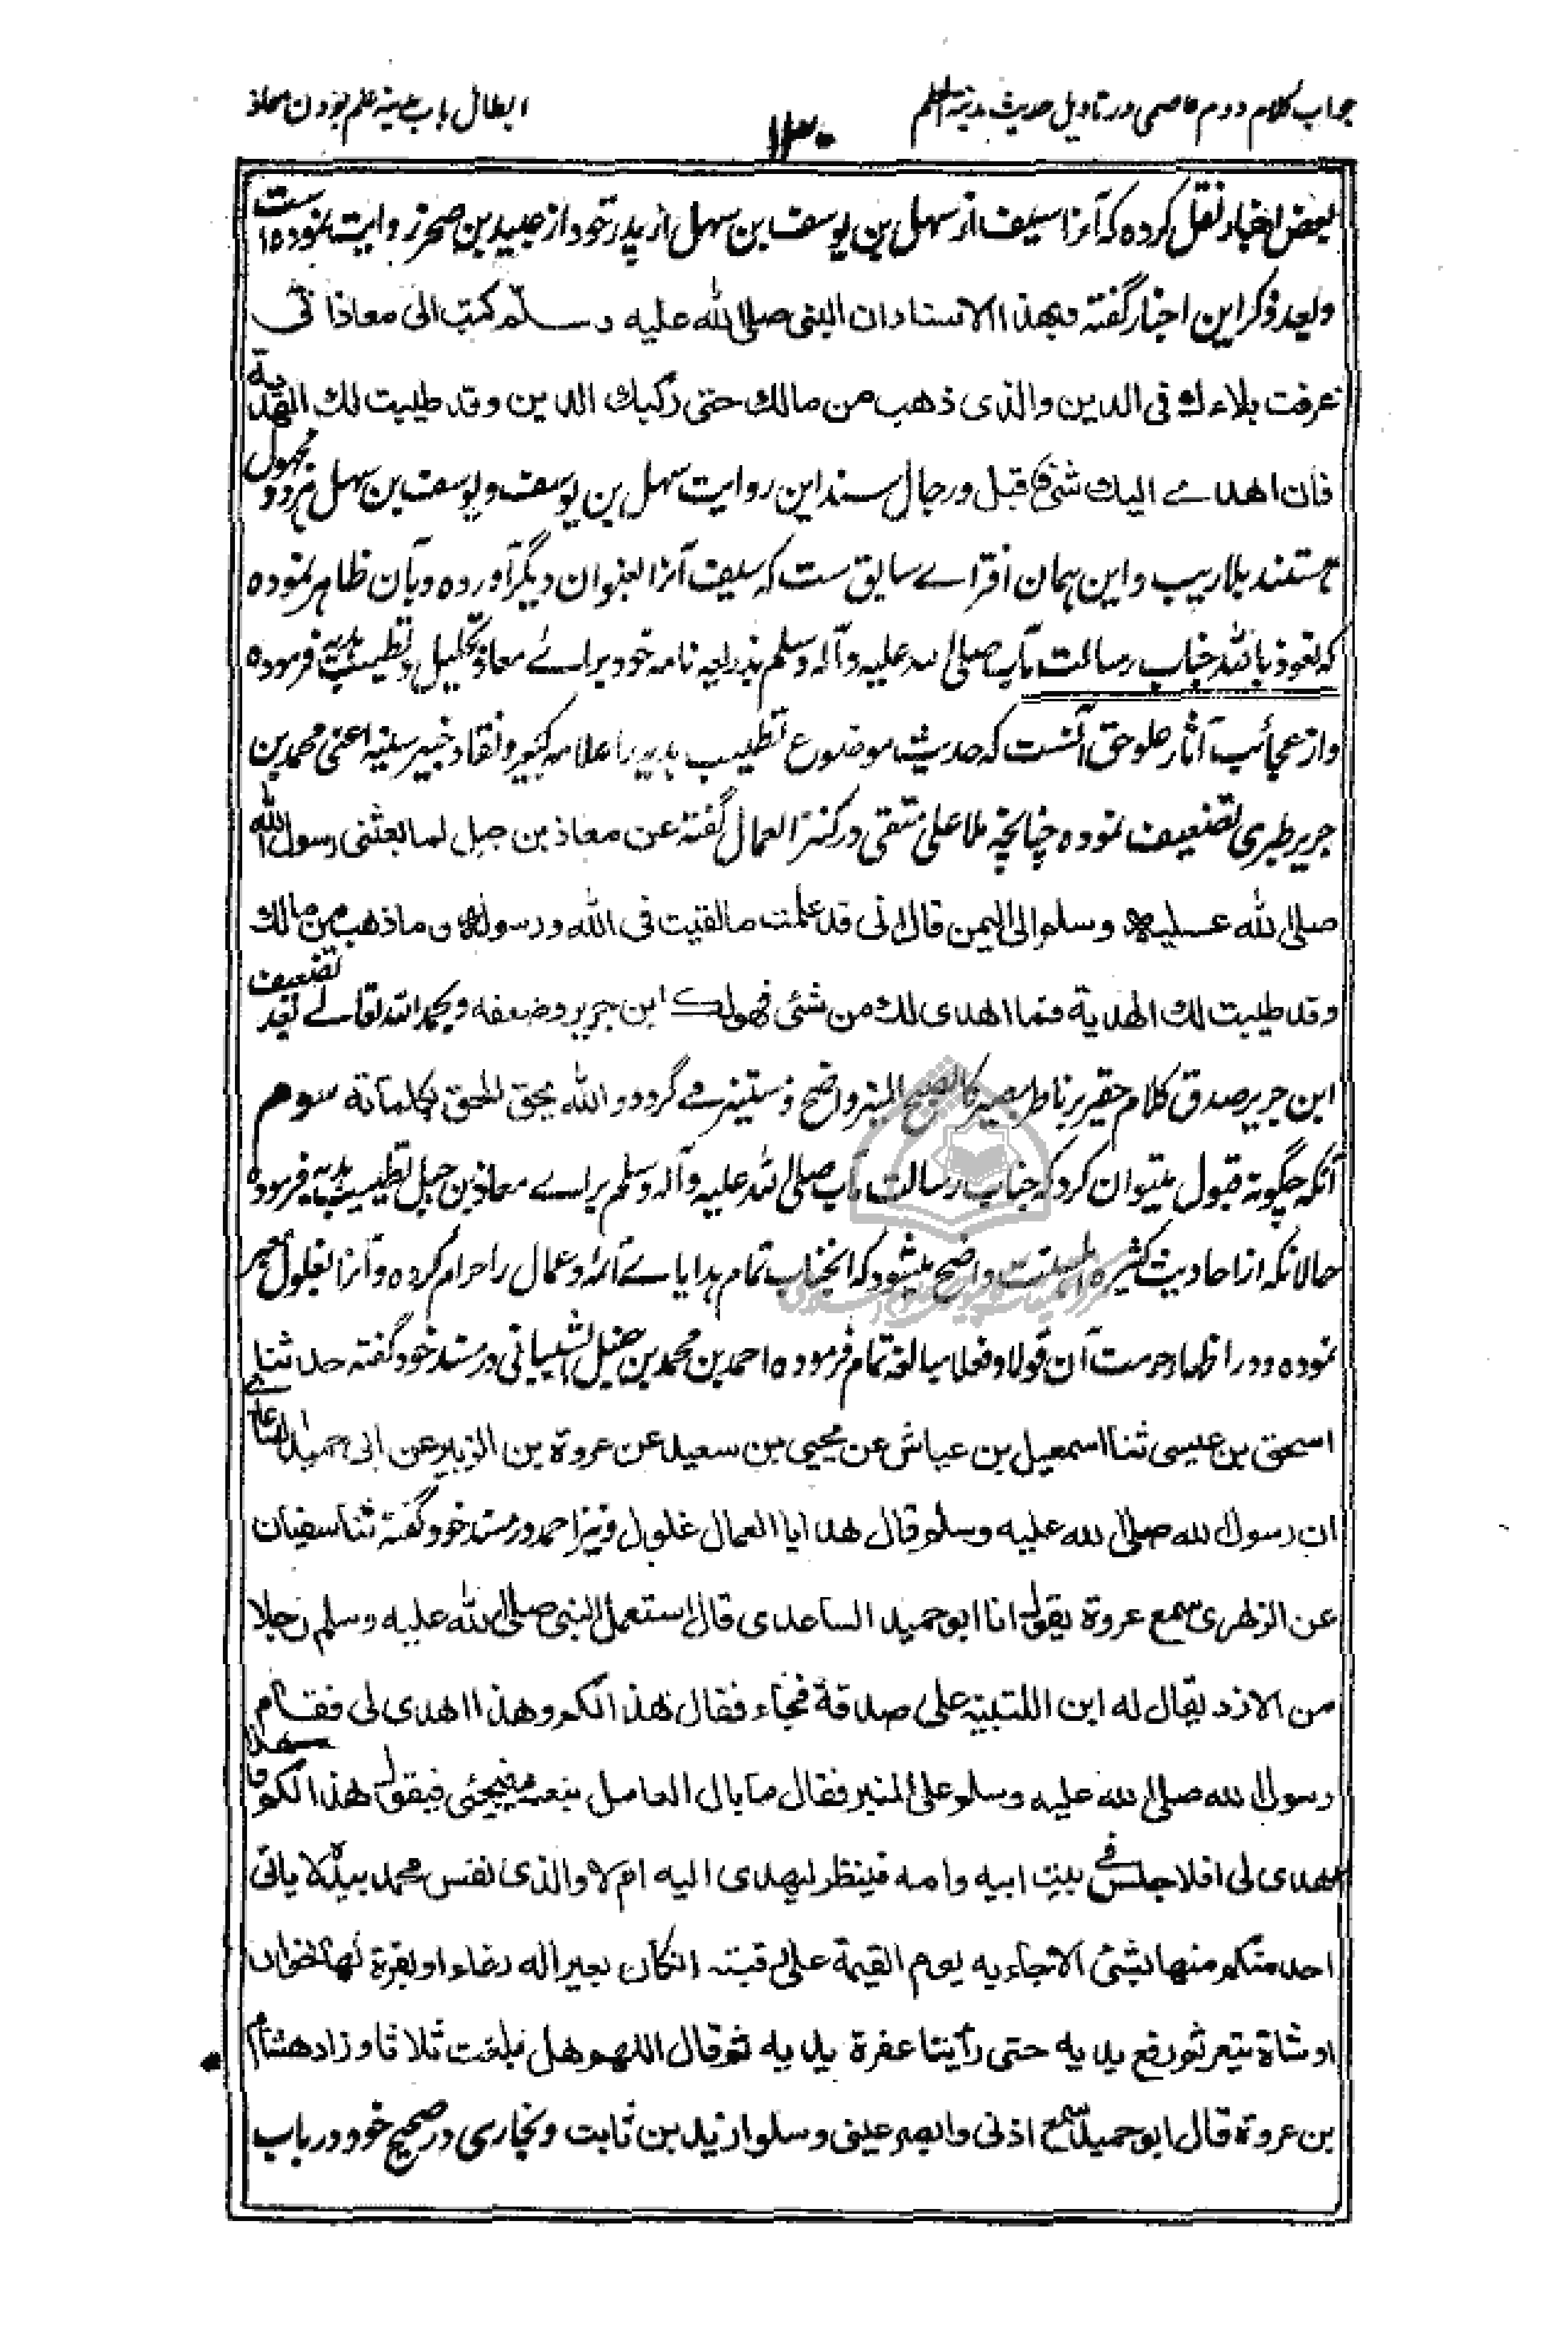 جواب کلام دوم عاصمی در تاویل حدیث مدینة العلم
۱۳۰
ابطال باب مدینه علم بودن معاذ
بعض اخبار نقل کرده که آنرا سیف از سهل بن یوسف بن سهل از پدر خود از عبید بن صخر روایت نموده است
و بعد ذکر این اخبار گفته وبهذا الاسناد ان النبی صلی الله علیه وسلم کتب الی معاذ انی
عرفت بلاءك فی الدین والذی ذهب من مالك حتی رکبك الدین وقد طیبت لك الهدیة
فان اهدے الیك شئ فاقبل و رجال سند این روایت سهل بن یوسف و یوسف بن سهل هر دو مجهول
هستند بلا ریب و این همان افتراے سابق ست که سیف آنرا بعنوان دیگر آورده و بآن ظاهر نموده
که نعوذ بالله جناب رسالت مآب صلی الله علیه وآله وسلم بذریعه نامه خود براے معاذ تحلیل و تطییب هدیه فرموده
و از عجائب آثار علو حق آنست که حدیث موضوع تطییب هدیه را علامه کبیر و نقاد خبیر سنیه اعنی محمد بن
جریر طبری تضعیف نموده چنانچه ملا علی متقی در کنز العمال گفته عن معاذ بن جبل لما بعثنی رسول الله
صلی الله علیه وسلم الی الیمن قال انی قد علمت ما لقیت فی الله ورسوله وما ذهب من مالك
وقد طیبت لك الهدیة فما اهدی لك من شئی فهو لك ابن جریر وضعفه و بحمد الله تعالے بعد تضعیف
ابن جریر صدق کلام حقیر بر ناظر بصیر کالصبح المنیر واضح و مستنیر مے گردد والله یحق الحق بکلماته سوم
آنکه چگونه قبول میتوان کرد که جناب رسالت مآب صلی الله علیه وآله وسلم براے معاذ بن جبل تطییب هدیه فرموده
حالانکه از احادیث کثیره اهلسنت واضح میشود که آنجناب تمام هدایاے ائمه و عمال را حرام کرده و آنرا بغلول معبر
نموده و در اظهار حرمت آن قولا و فعلا مبالغه تمام فرموده احمد بن محمد بن حنبل الشیبانی در مسند خود گفته حدثنا
اسحق بن عیسی ثنا اسمعیل بن عیاش عن یحیی بن سعید عن عروة بن الزبیر عن ابی حمید الساعدے
ان رسول الله صلی الله علیه وسلم قال هدایا العمال غلول و نیز احمد در مسند خود گفته ثنا سفیان
عن الزهری سمع عروة یقول انا ابو حمید الساعدی قال استعمل النبی صلی الله علیه وسلم رجلا
من الازد یقال له ابن اللتبیة علی صدقة فجاء فقال هذا لکم وهذا اهدی لی فقام
رسول الله صلی الله علیه وسلم علی المنبر فقال ما بال العامل نبعثه فیجئی فیقول هذا لکم وهذا
اهدی لی افلا جلس فی بیت ابیه وامه فینظر ایهدی الیه ام لا والذی نفس محمد بیده لا یاتی
احد منکم منها بشئ الا جاء به یوم القیمة علی رقبته ان کان بعیرا له رغاء او بقرة لها خوار
او شاة تیعر ثم رفع یدیه حتی رأینا عفرة یدیه ثم قال اللهم هل بلغت ثلاثا وزاد هشام
بن عروة قال ابو حمید سمع اذنی وابصر عینی وسلوا زید بن ثابت و بخاری در صحیح خود در باب